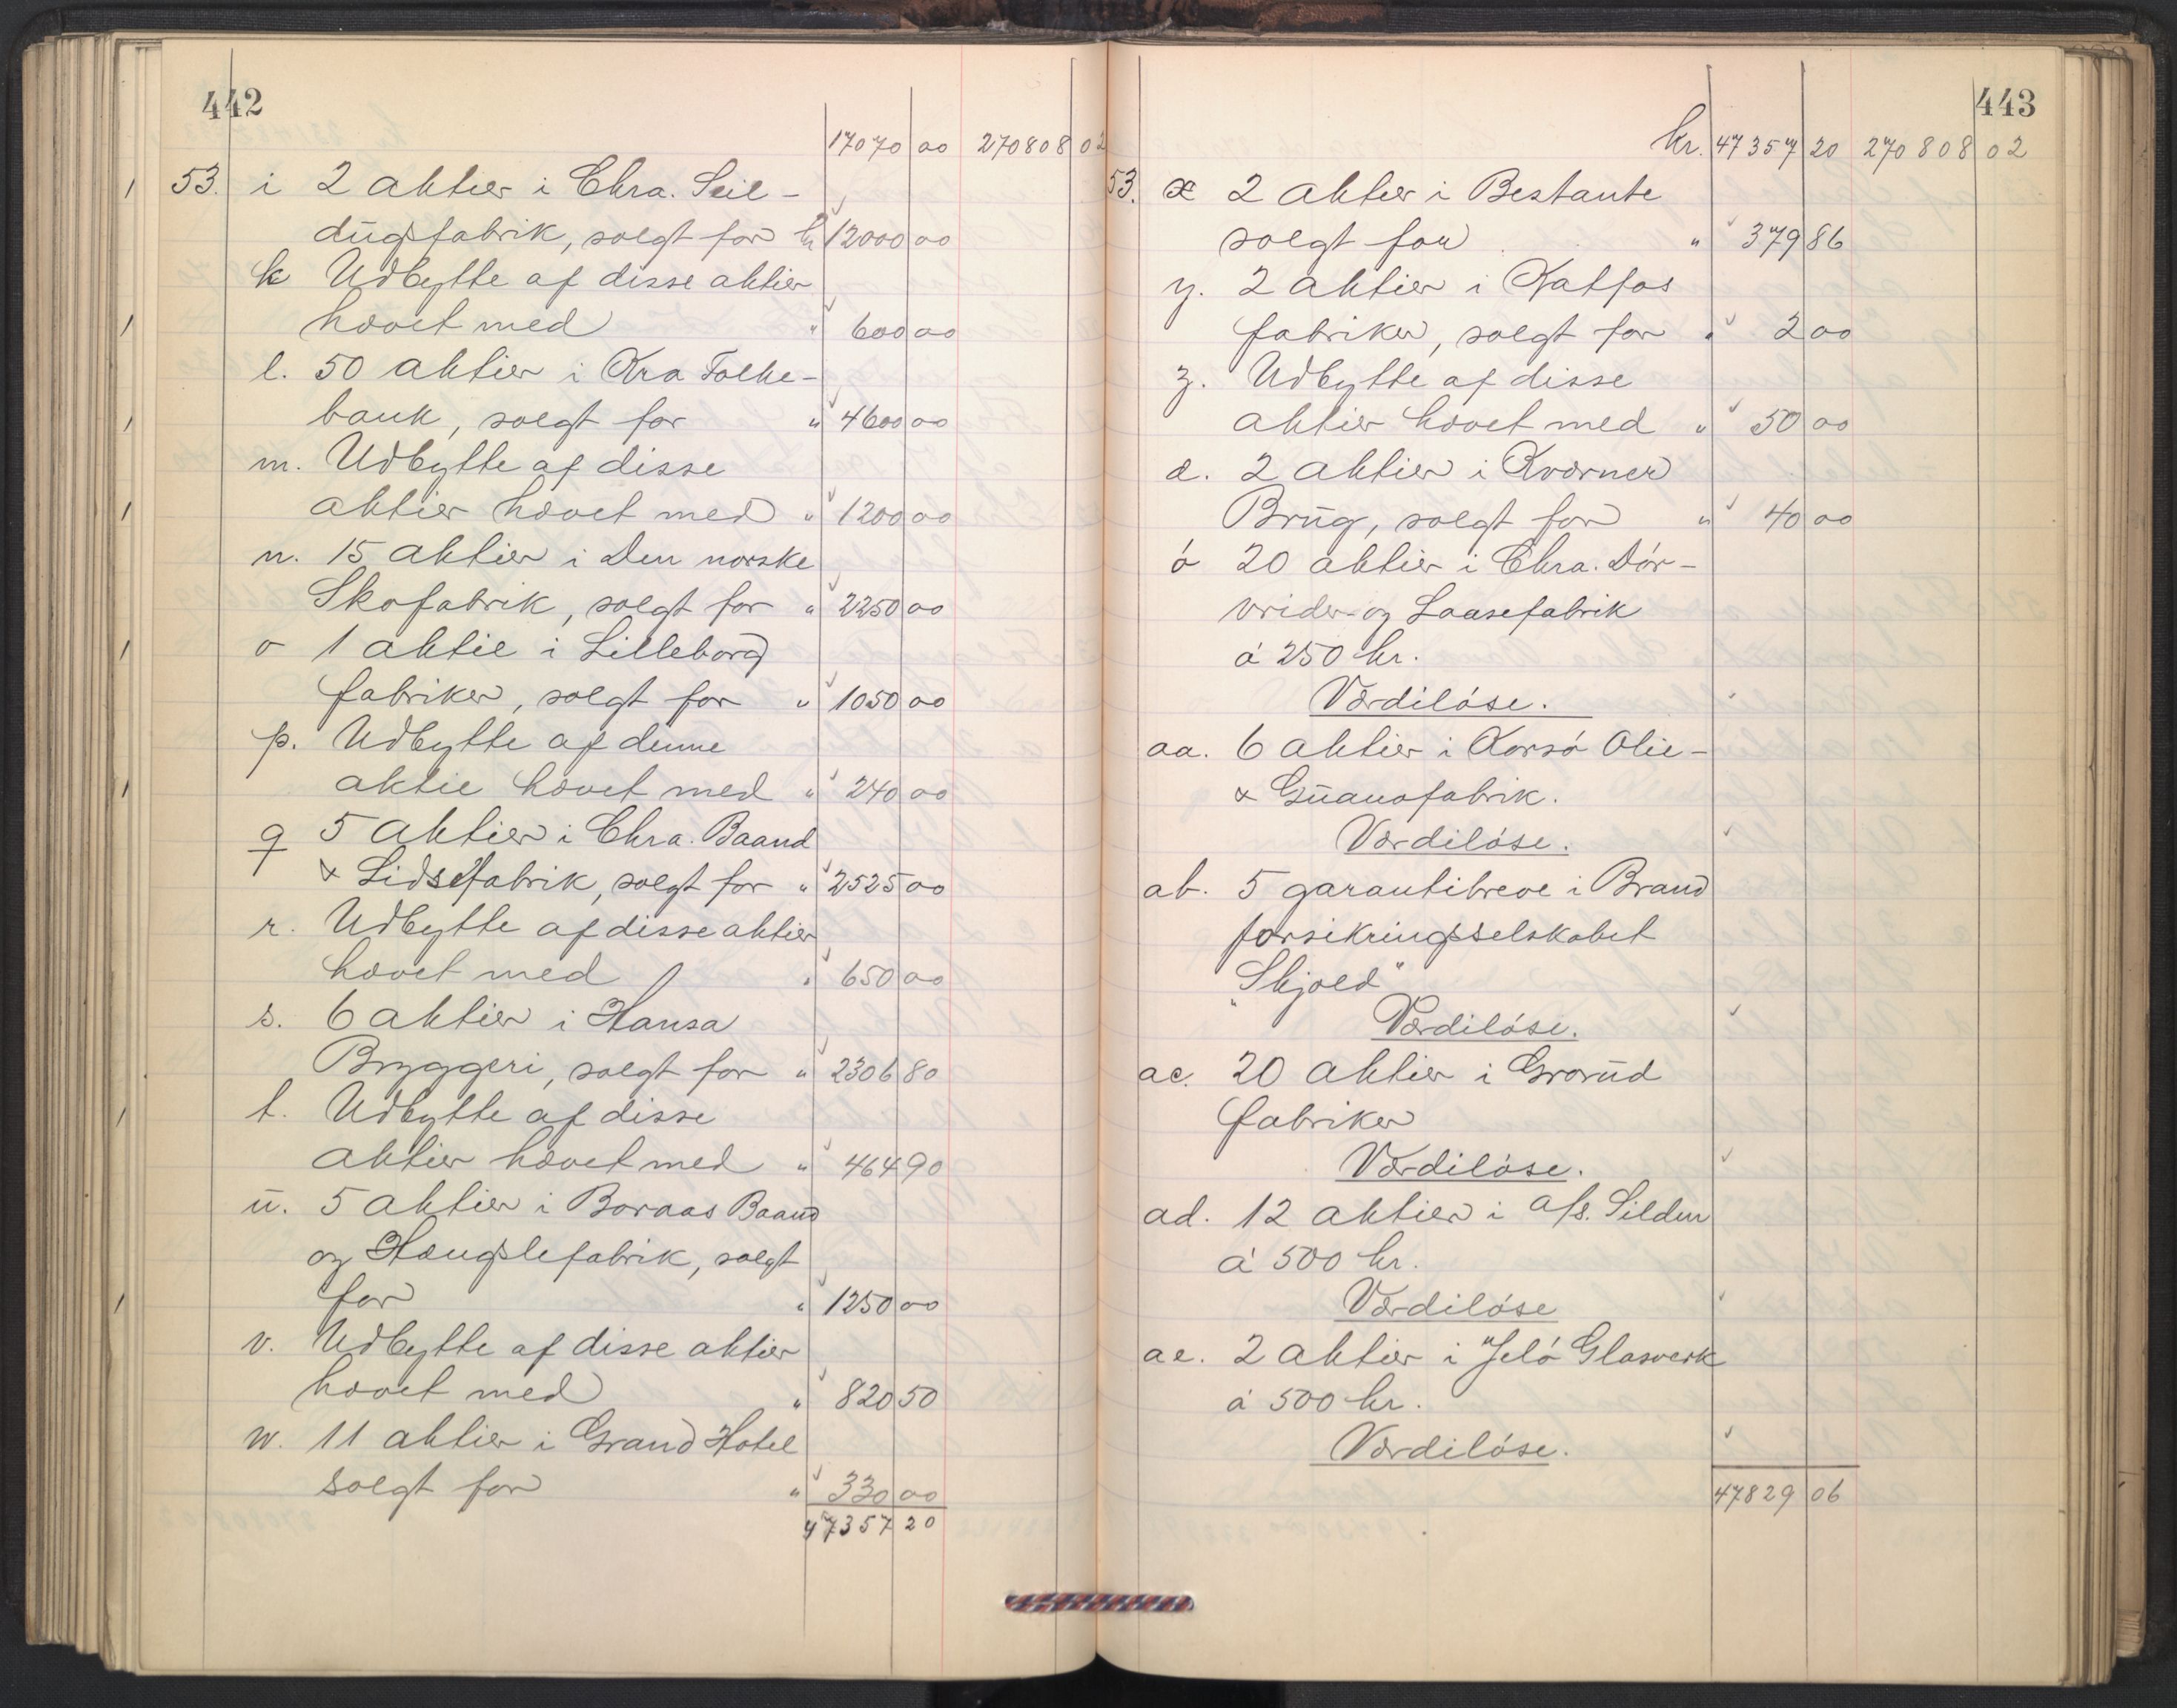 442
17070 00 270808 02
53. i 2 aktier i Chra. Seil-
dugsfabrik, solgt for kr 12000 00
k Udbytte af disse aktier
hævet med " 600 00
l. 50 aktier i Kra Folke-
bank, solgt for " 4600 00
m. Udbytte af disse
aktier hævet med " 1200 00
n. 15 aktier i Den norske
Skofabrik, solgt for " 2250 00
o 1 aktie i Lilleborg
fabriker, solgt for " 1050 00
p. Udbytte af denne
aktie hævet med " 240 00
q 5 aktier i Chra. Baand
& Lidsefabrik, solgt for " 2525 00
r. Udbytte af disse aktier
hævet med " 650 00
s. 6 aktier i Hansa
Bryggeri, solgt for " 2306 80
t. Udbytte af disse
aktier hævet med " 464 90
u. 5 aktier i Boraas Baand
og Hængslefabrik, solgt
for " 1250 00
v. Udbytte af disse aktier
hævet med " 820 50
w. 11 aktier i Grand Hotel
solgt for " 330 00
47357 20
443
kr. 47357 20 270808 02
53. x 2 aktier i Bestante
solgt for " 379 86
y. 2 aktier i Katfos
fabriker, solgt for " 2 00
z. Udbytte af disse
aktier hævet med " 50 00
æ. 2 aktier i Kværner
Brug, solgt for " 40 00
ó 20 aktier i Chra. Dór-
vrider- og Laasefabrik
á 250 kr.
Værdilóse.
aa. 6 aktier i Korsó Olie-
& Guanofabrik.
Værdilóse.
ab. 5 garantibreve i Brand
forsikringsselskabet
"Skjold"
Værdilóse.
ac. 20 aktier i Grorud
fabriker
Værdilóse.
ad. 12 aktier i a/s. Silden
á 500 kr.
Værdilóse
ae. 2 aktier i "Jeló Glasverk
á 500 kr.
Værdilóse.
47829 06